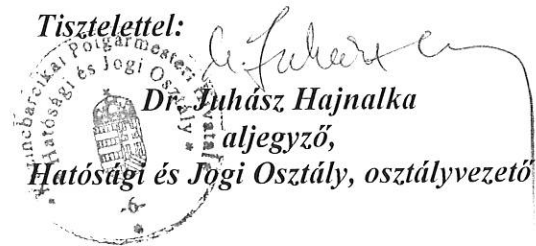 Tisztelettel:
Dr. Juhász Hajnalka
aljegyző,
Hatósági és Jogi Osztály, osztályvezető
Polgármesteri
Hatósági és Jogi Osztály
-6-